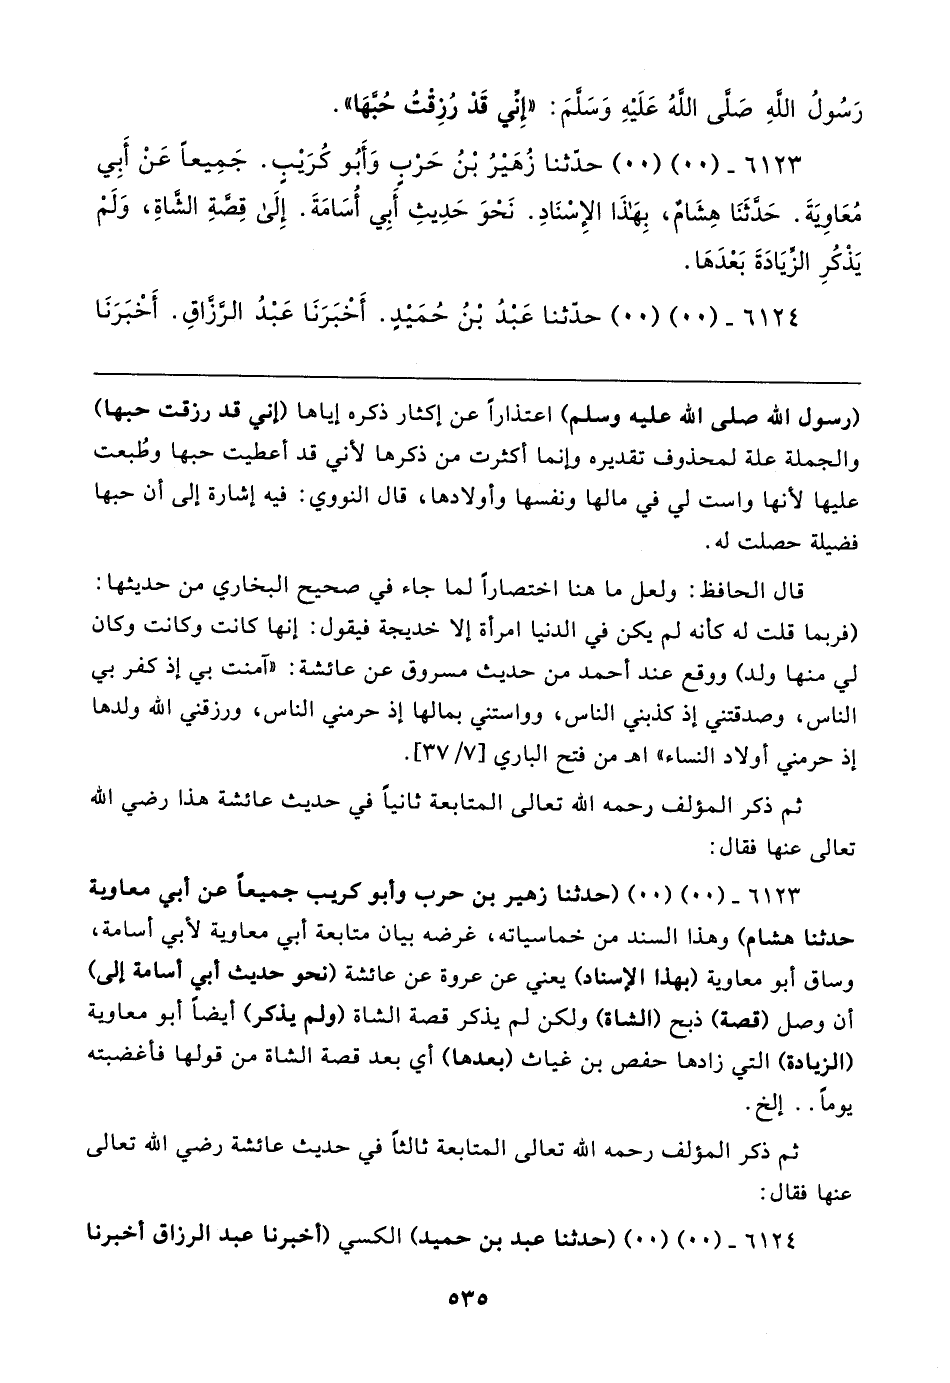 رَسُولُ اللَّهِ صَلَّى اللَّهُ عَلَيْهِ وَسَلَّمَ: «إِنِّي قَدْ رُزِقْتُ حُبَّهَا».
٦١٢٣ ـ (٠٠) (٠٠) حدّثنا زُهَيْرُ بْنُ حَرْبٍ وَأَبُو كُرَيْبٍ. جَمِيعاً عَنْ أَبِي
مُعَاوِيَةَ. حَدَّثَنَا هِشَامٌ، بِهَٰذَا الإِسْنَادِ. نَحْوَ حَدِيثِ أَبِي أُسَامَةَ. إِلَىٰ قِصَّةِ الشَّاةِ، وَلَمْ
يَذْكُرِ الزِّيَادَةَ بَعْدَهَا.
٦١٢٤ ـ (٠٠) (٠٠) حدّثنا عَبْدُ بْنُ حُمَيْدٍ. أَخْبَرَنَا عَبْدُ الرَّزَّاقِ. أَخْبَرَنَا
(رسول الله صلى الله عليه وسلم) اعتذاراً عن إكثار ذكره إياها (إني قد رزقت حبها)
والجملة علة لمحذوف تقديره وإنما أكثرت من ذكرها لأني قد أعطيت حبها وطُبعت
عليها لأنها واست لي في مالها ونفسها وأولادها، قال النووي: فيه إشارة إلى أن حبها
فضيلة حصلت له.
قال الحافظ: ولعل ما هنا اختصاراً لما جاء في صحيح البخاري من حديثها:
(فربما قلت له كأنه لم يكن في الدنيا امرأة إلا خديجة فيقول: إنها كانت وكانت وكان
لي منها ولد) ووقع عند أحمد من حديث مسروق عن عائشة: «آمنت بي إذ كفر بي
الناس، وصدقتني إذ كذبني الناس، وواستني بمالها إذ حرمني الناس، ورزقني الله ولدها
إذ حرمني أولاد النساء» اهـ من فتح الباري [٧/ ٣٧].
ثم ذكر المؤلف رحمه الله تعالى المتابعة ثانياً في حديث عائشة هذا رضي الله
تعالى عنها فقال:
٦١٢٣ ـ (٠٠) (٠٠) (حدثنا زهير بن حرب وأبو كريب جميعاً عن أبي معاوية
حدثنا هشام) وهذا السند من خماسياته، غرضه بيان متابعة أبي معاوية لأبي أسامة،
وساق أبو معاوية (بهذا الإسناد) يعني عن عروة عن عائشة (نحو حديث أبي أسامة إلى)
أن وصل (قصة) ذبح (الشاة) ولكن لم يذكر قصة الشاة (ولم يذكر) أيضاً أبو معاوية
(الزيادة) التي زادها حفص بن غياث (بعدها) أي بعد قصة الشاة من قولها فأغضبته
يوماً.. إلخ.
ثم ذكر المؤلف رحمه الله تعالى المتابعة ثالثاً في حديث عائشة رضي الله تعالى
عنها فقال:
٦١٢٤ ـ (٠٠) (٠٠) (حدثنا عبد بن حميد) الكسي (أخبرنا عبد الرزاق أخبرنا
٥٣٥